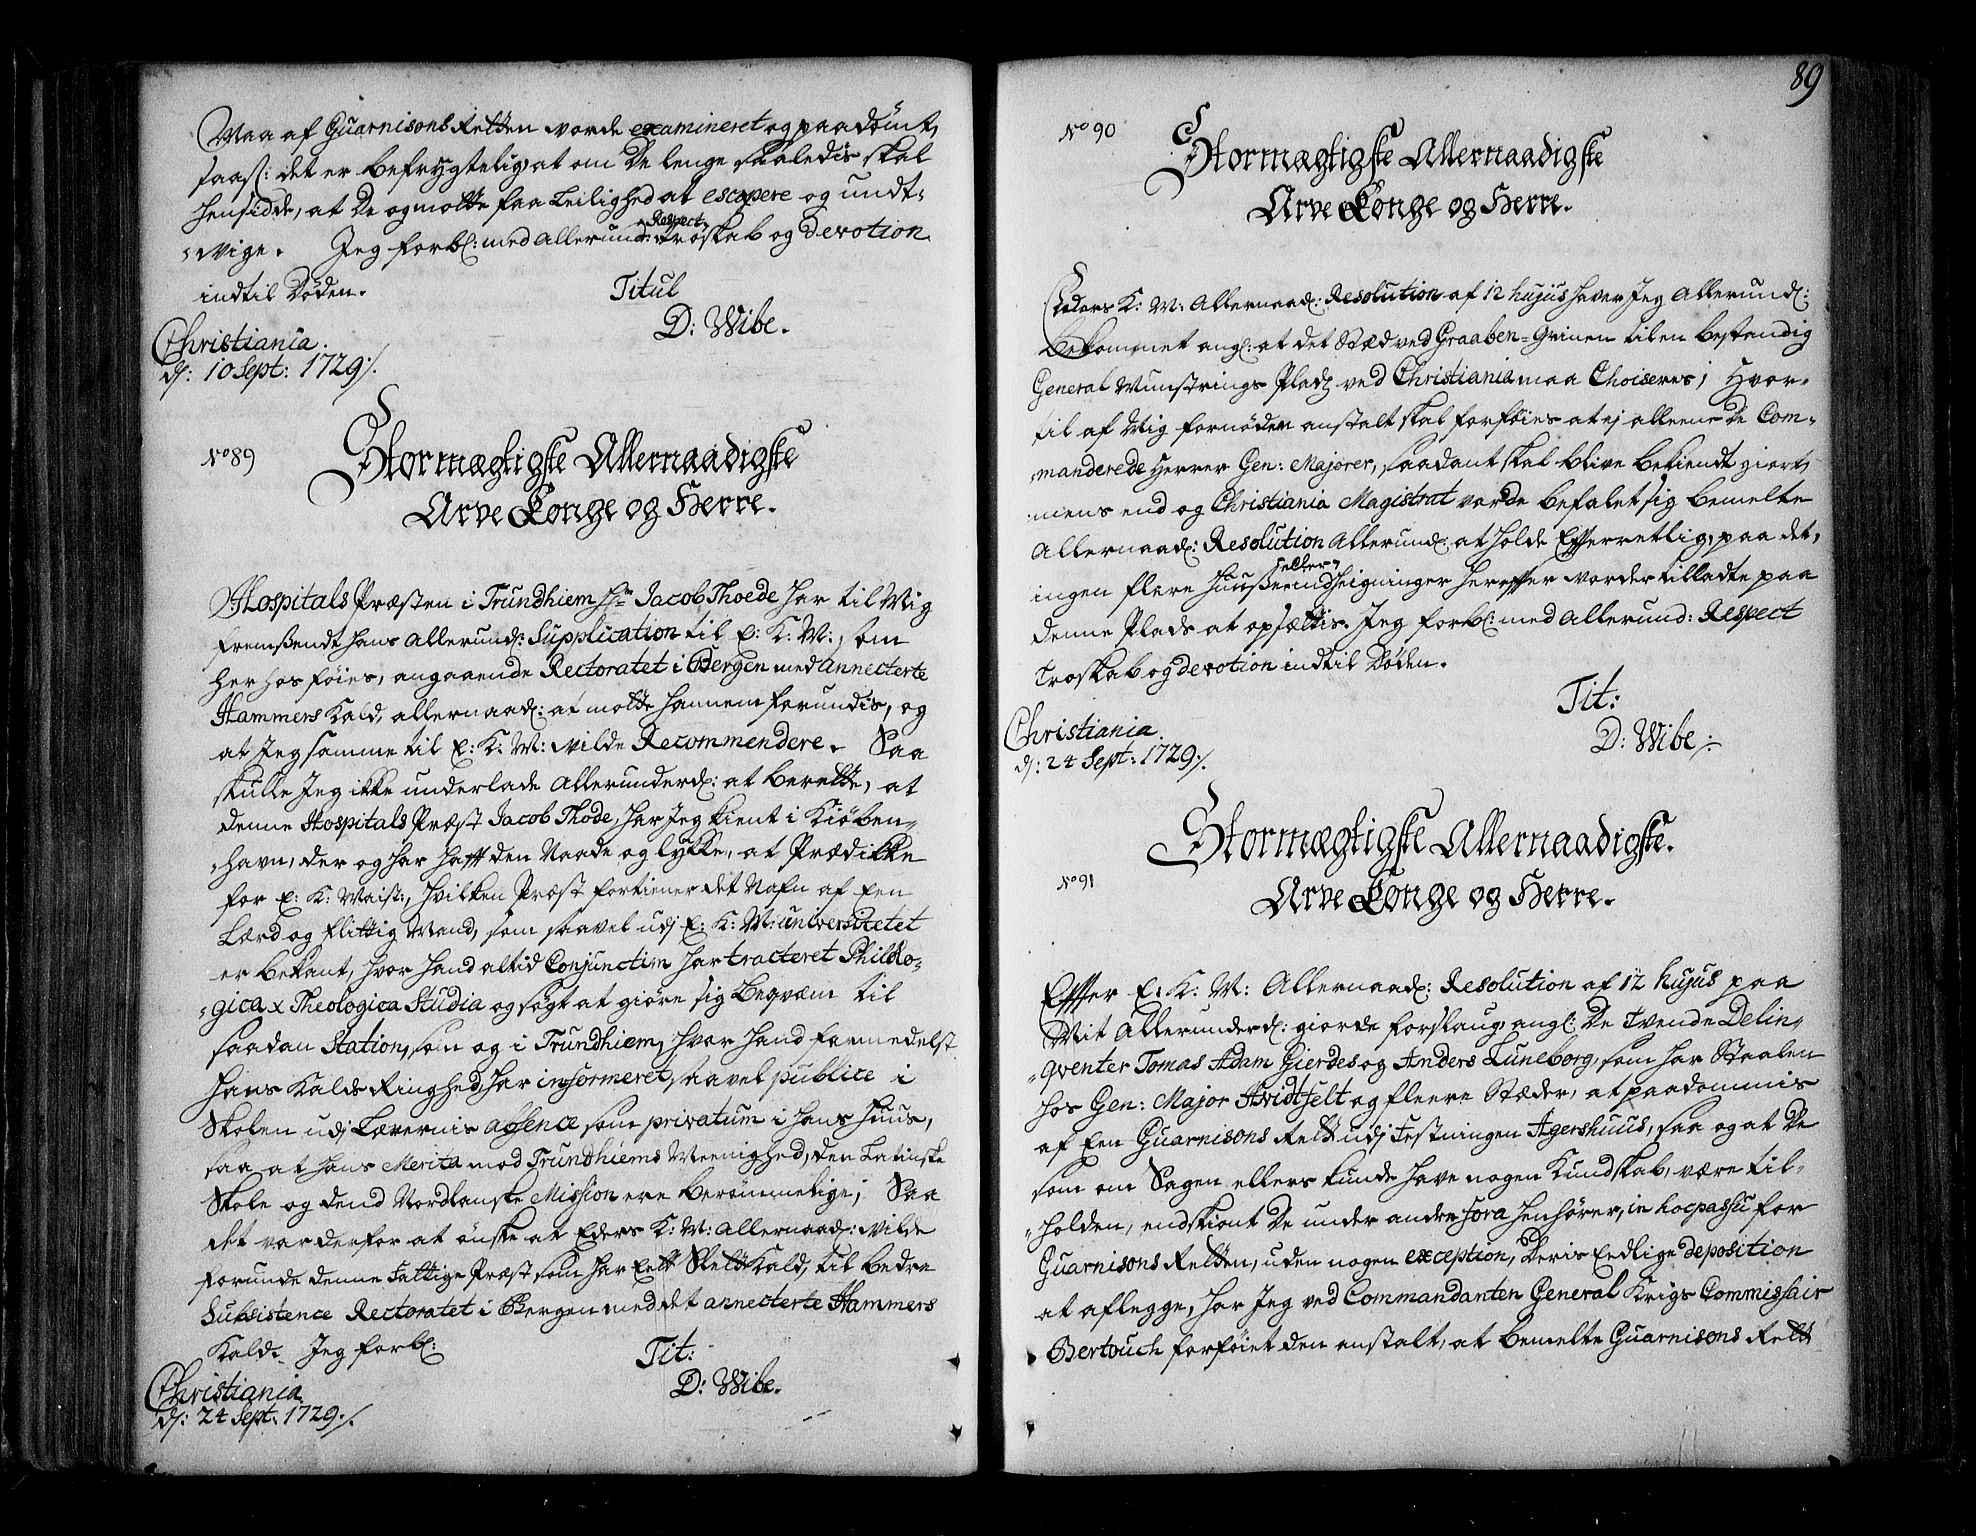 Maa af Guarnisons Retten vorde examineret og paadømt,
saas: det er befrygtelig, at om De lenge saaledis skal
hensidde, at De og motte faa Leilighed at escapere og undt-
-vige. Jeg forbl: med Allerund: Respect Troskab og Devotion
indtil Døden.
Titul
D: Wibe.
Christiania.
d: 10 Sept: 1729
No 89
Stormægtigste Allernaadigste
Arve Konge og Herre.
Hospitals Præsten i Trundhiem Hr Jacob Thoede har til Mig
fremsendt hans Allerund: Supplication til E: K: M:, som
herhos føies, angaaende Rectoratet i Bergen med annecterte
Hammers Kald, allernaad: at motte hannem forundis, og
at Jeg samme til E: K: M: vilde Recommendere. Saa
skulle Jeg ikke underlade Allerunderd: at berette, at
denne Hospitals Præst Jacob Thode, har Jeg kient i Kiøben-
-havn, der og har hafft den Naade og lykke, at Prædikke
for E: K: Maist:, hvilken Præst fortiener det Nafn af Een
Lærd og flittig Mand, som saavel udj E: K: M: universitetet
er bekant, hvor hand altid Conjunctim har tracteret Philolo-
-gica & Theologica Studia og søgt at giøre sig beqvæm til
saadan Station, som og i Trundhiem, hvor hand formedelst
hans Kalds Ringhed, har informeret, saavel publice i
Skolen udj Lærernis absence som privatum i hans Huus,
saa at hans Merita mod Trundhiems Meenighed, den Latinske
Skole og dend Nordlanske Mission ere berømmelige; Saa
det var derfor at ønske at Eders K: M: Allernaad: vilde
forunde denne Fattige Præst som har Eett Slett Kald, til bedre
Subsistence Rectoratet i Bergen med det annecterte Hammers
Kald. Jeg forbl:
Tit:
D: Wibe.
Christiania
d: 24 Sept: 1729.
89
No 90
Stormægtigste Allernaadigste
Arve Konge og Herre.
Eders K: M: Allernaad: Resolution af 12 hujus haver Jeg Allerund:
bekommet ang: at det Stæd ved Graaben-Grinen til en bestandig
General Munstrings Pladz ved Christiania maa Choiseres; Hvor-
til af Mig fornøden anstalt skal forføies at ej alleene De Com-
-manderede Herrer Gen: Majorer, saadant skal blive bekiendt giort,
mens end og Christiania Magistrat vorde befalet sig bemelte
Allernaad: Resolution Allerund: at holde Efterretlig, paa det,
ingen flere Huuse eller indheigninger herefter vorder tilladte paa
denne Plads at opsættis. Jeg forbl: med Allerund: Respect
Troskab og devotion indtil Døden.
Tit:
D: Wibe
Christiania.
d: 24 Sept: 1729.
Stormægtigste Allernaadigste.
No 91
Arve Konge og Herre.
Effter E: K: M: Allernaad: Resolution af 12 hujus paa
Mit Allerunderd: giorde forslaug, ang: De tvende Delin-
-qventer Tomas Adam Gierdes og Anders Luneborg, som har Staalen
hos Gen: Major Hvidtfelt og fleere Stæder, at paadømmis
af Een Guarnisons Rett udj Festningen Agershuus, saa og at De
som om Sagen ellers kunde have nogen Kundskab, være til-
-holden, endskiønt De under andre fora henhører, in hoc passu for
Guarnisons Retten, uden nogen exception, Deris Eedlige deposition
at aflegge, har Jeg ved Commandanten General Krigs Commissair
Bertouch forføiet den anstalt, at bemelte Guarnisons Rett